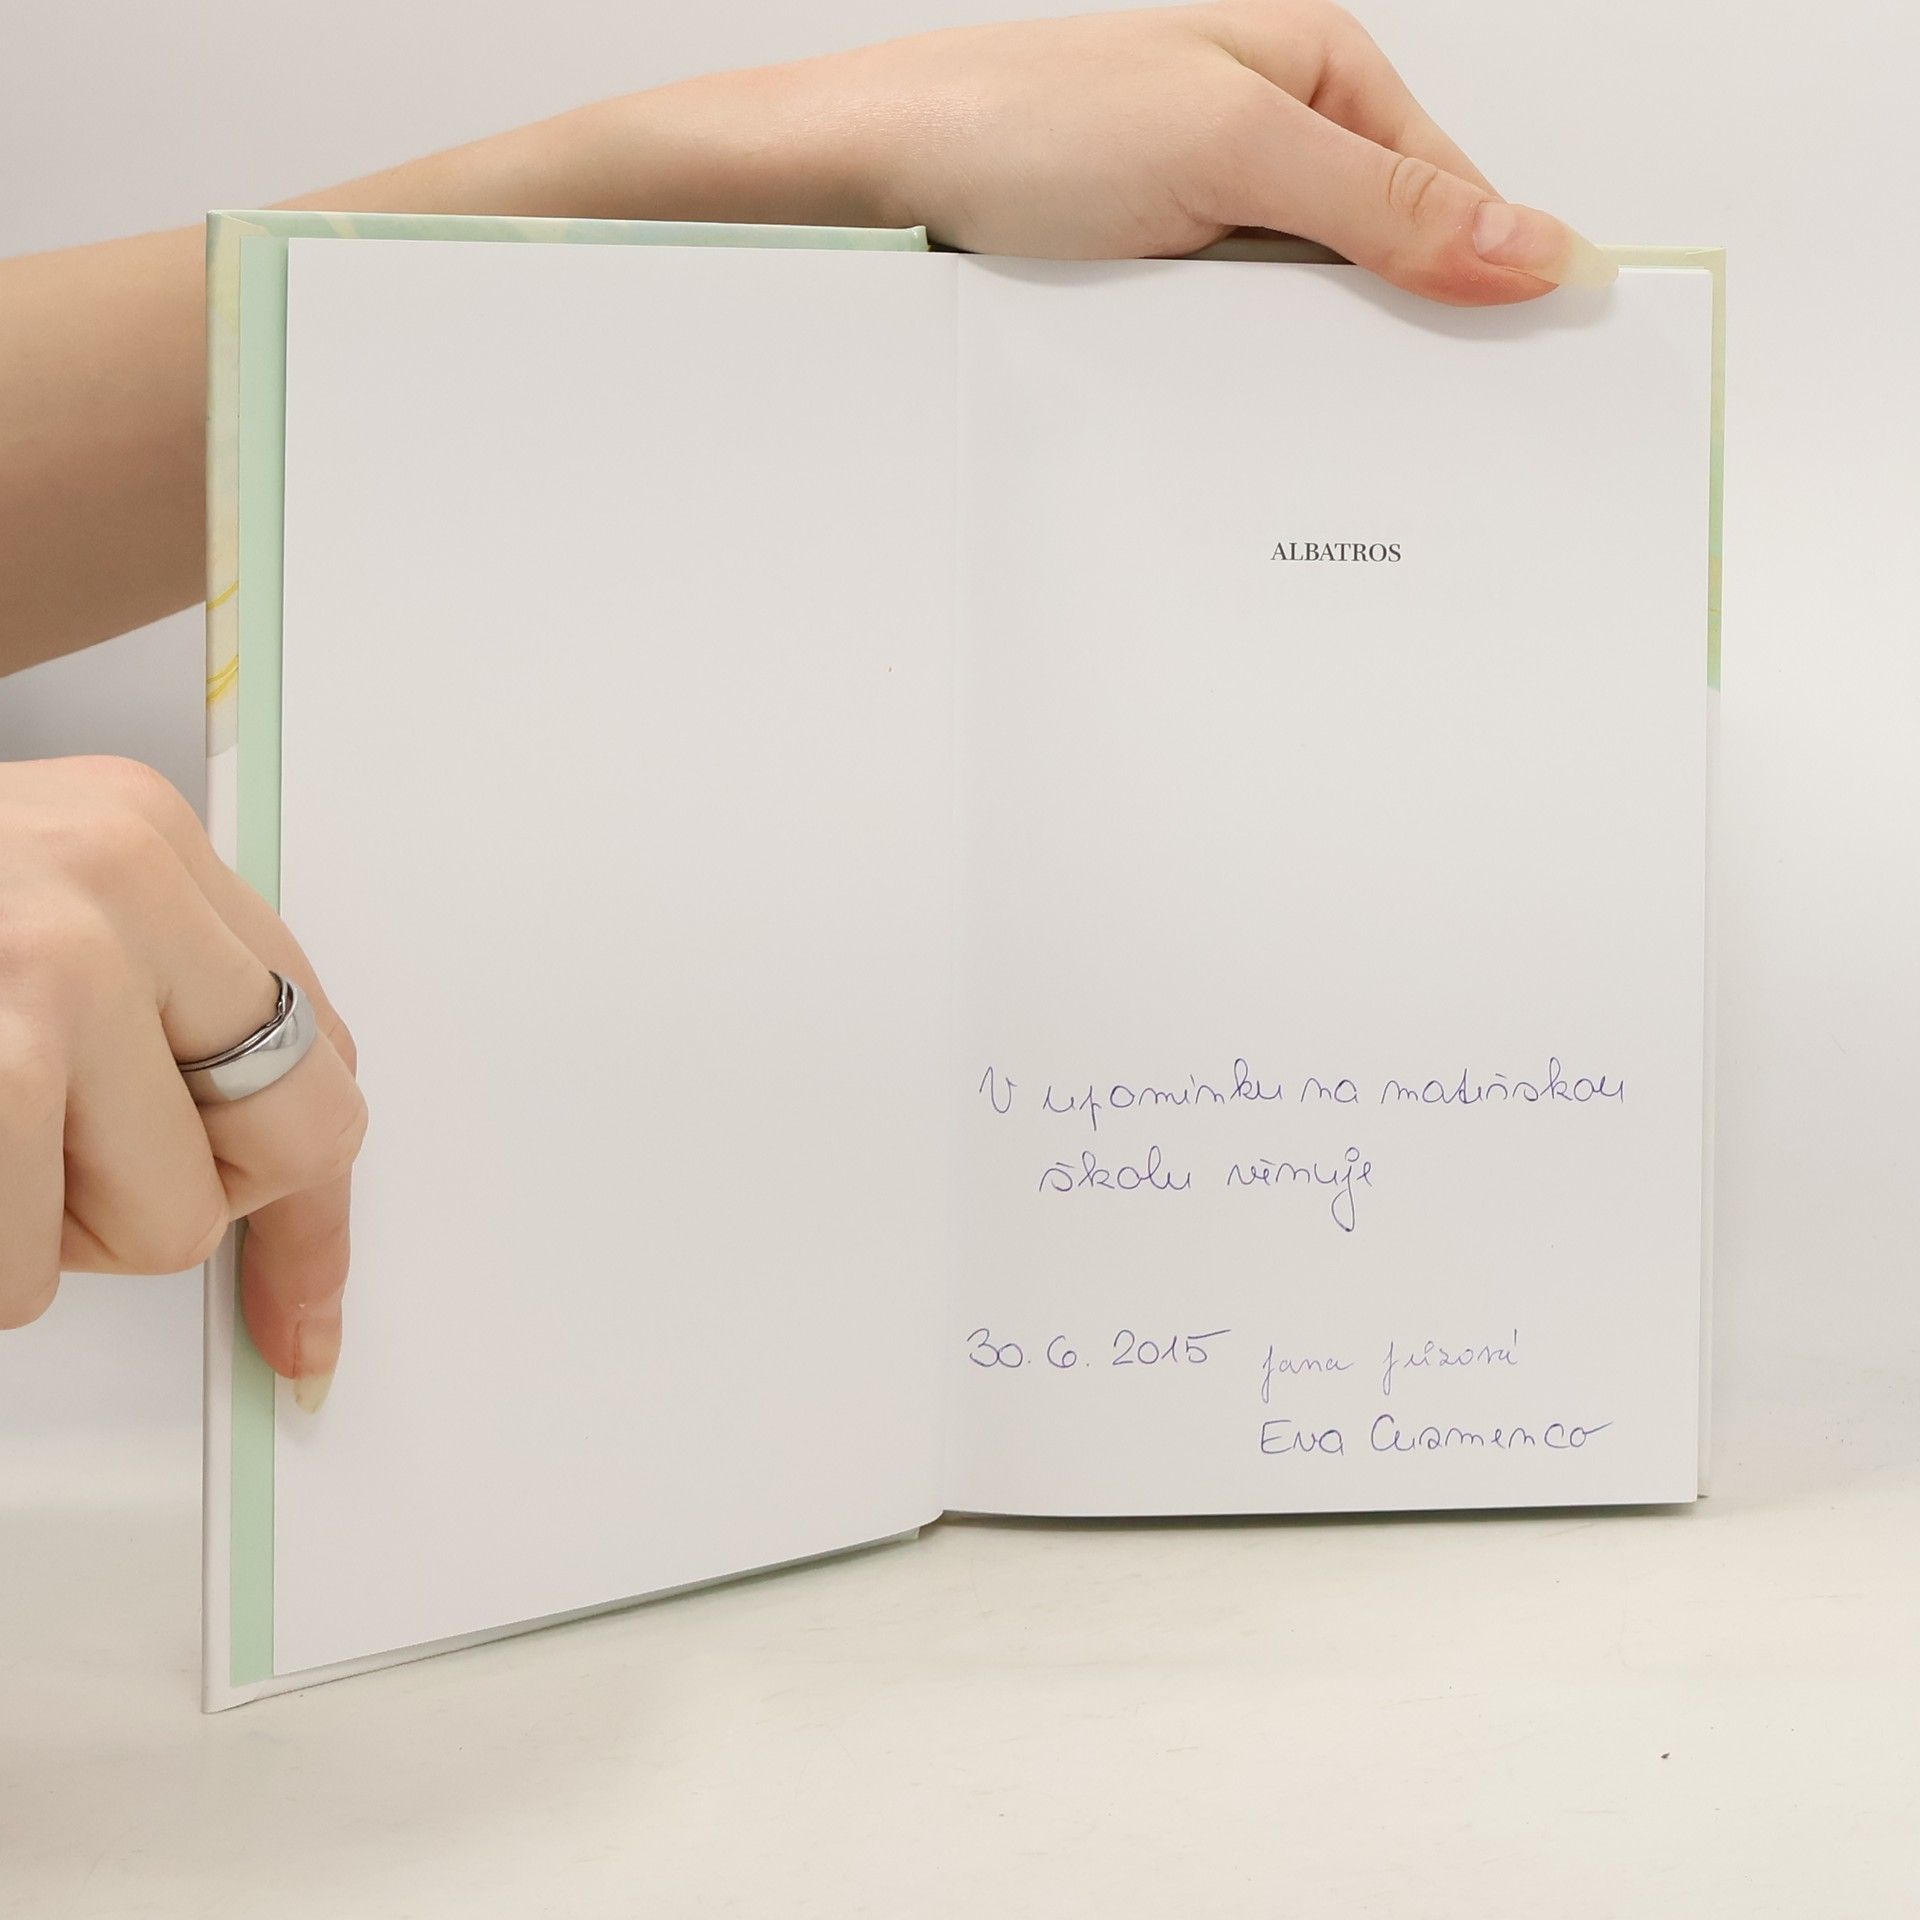 ALBATROS
V upomínku na mateřskou
školu věnuje
30. 6. 2015 Jana Jůzová
Eva Cuzmenco